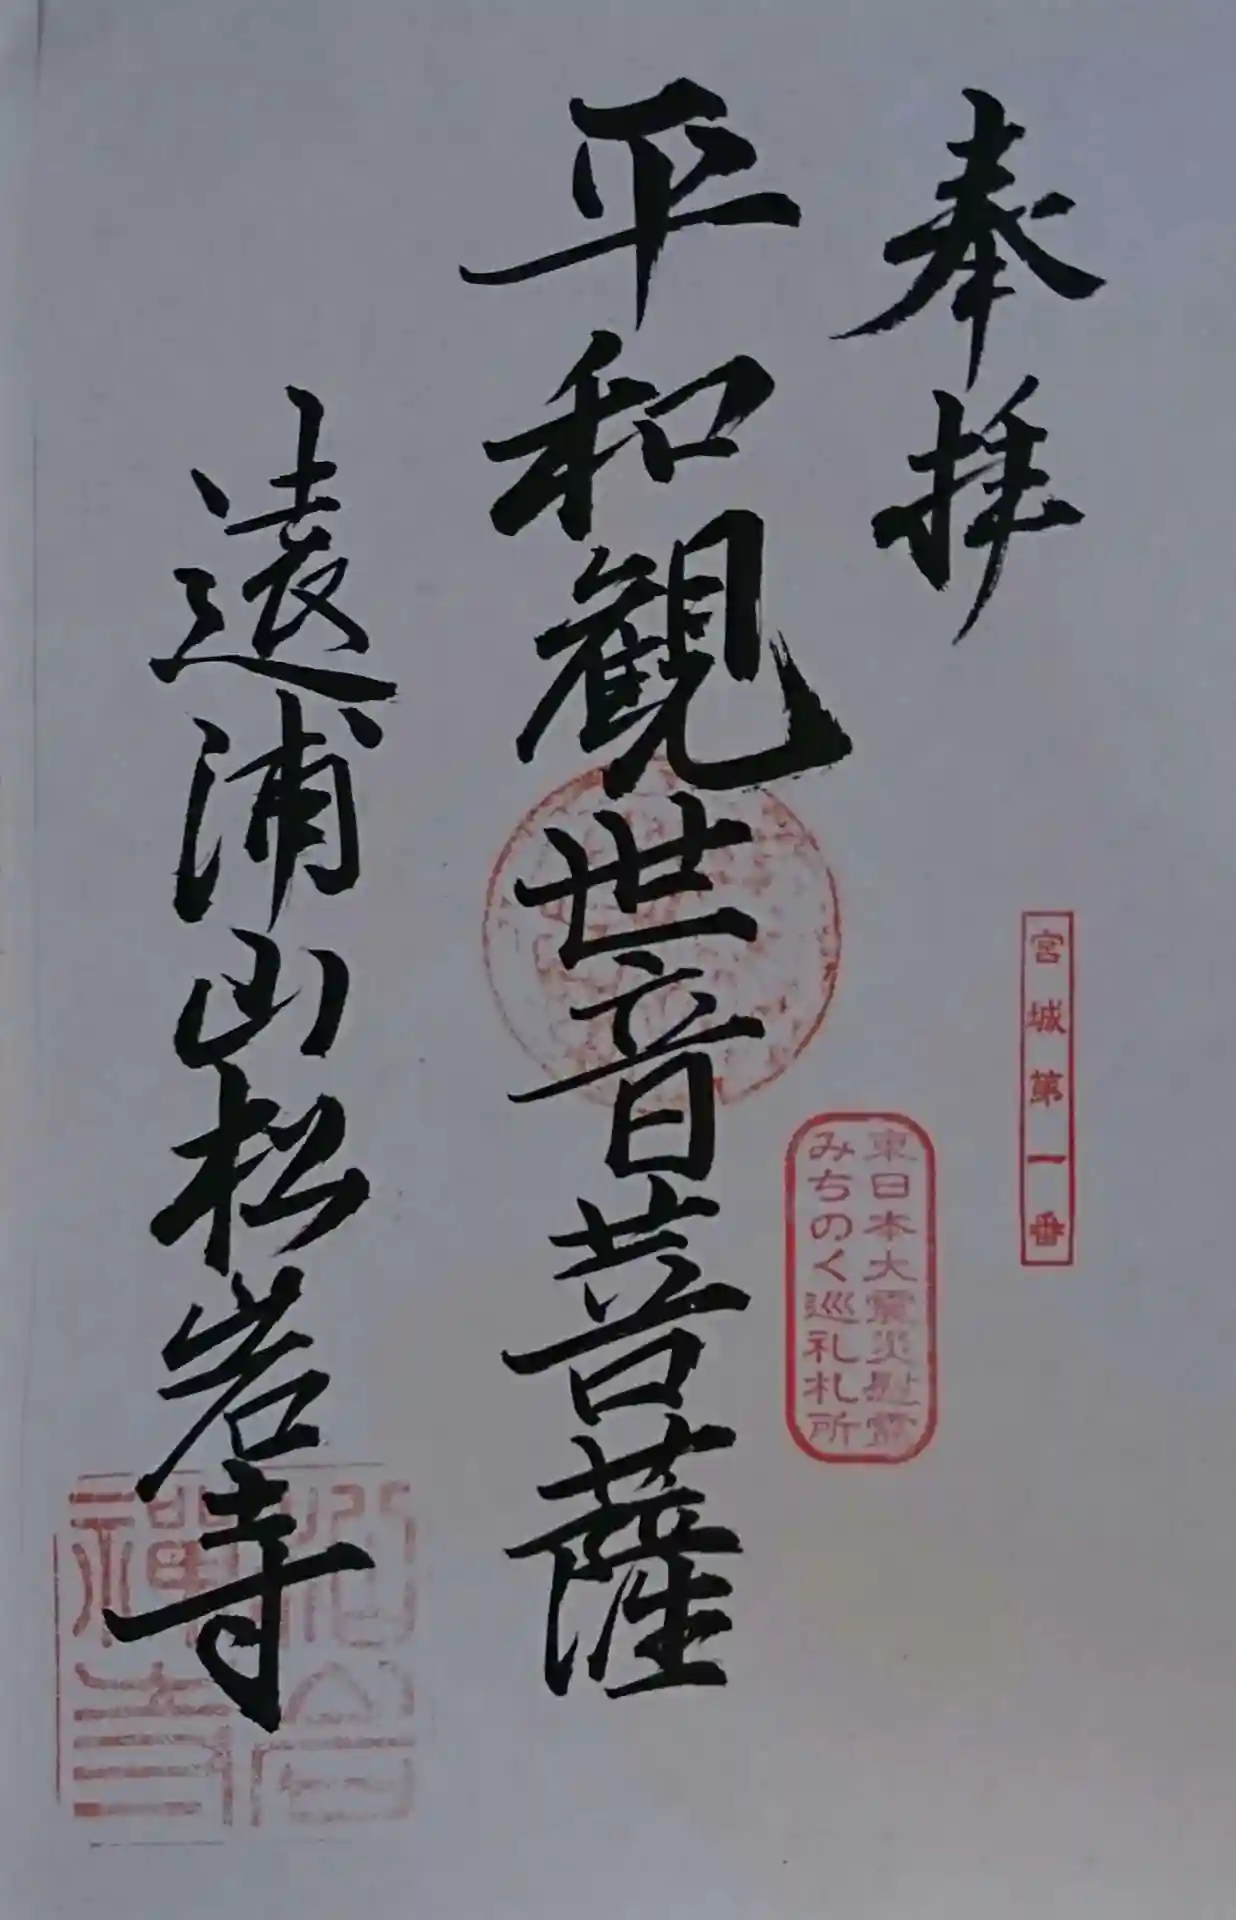 奉拝
宮城第一番
東日本大震災慰霊
みちのく巡礼札所
平和観世音菩薩
遠浦山松岩寺